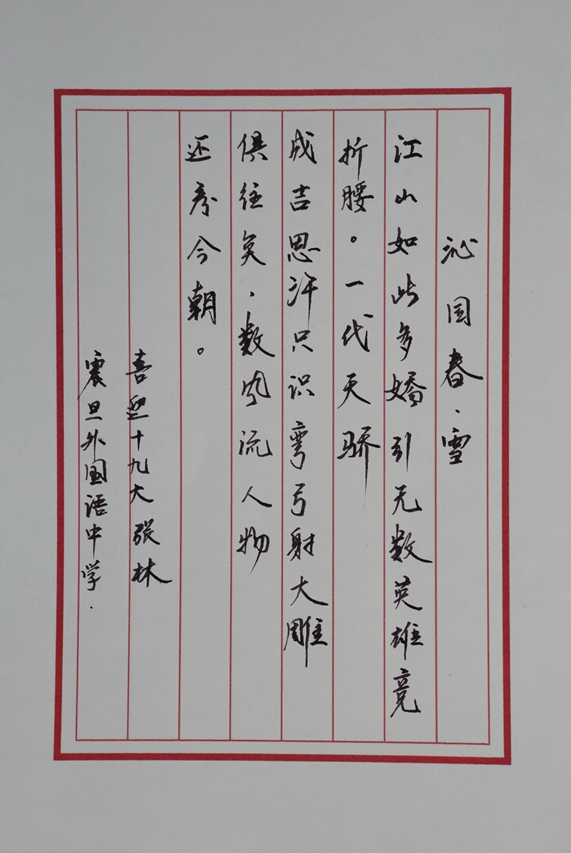 沁园春·雪
江山如此多娇引无数英雄竞
折腰。一代天骄
成吉思汗只识弯弓射大雕
俱往矣．数风流人物
还看今朝。
喜迎十九大张林
震旦外国语中学．